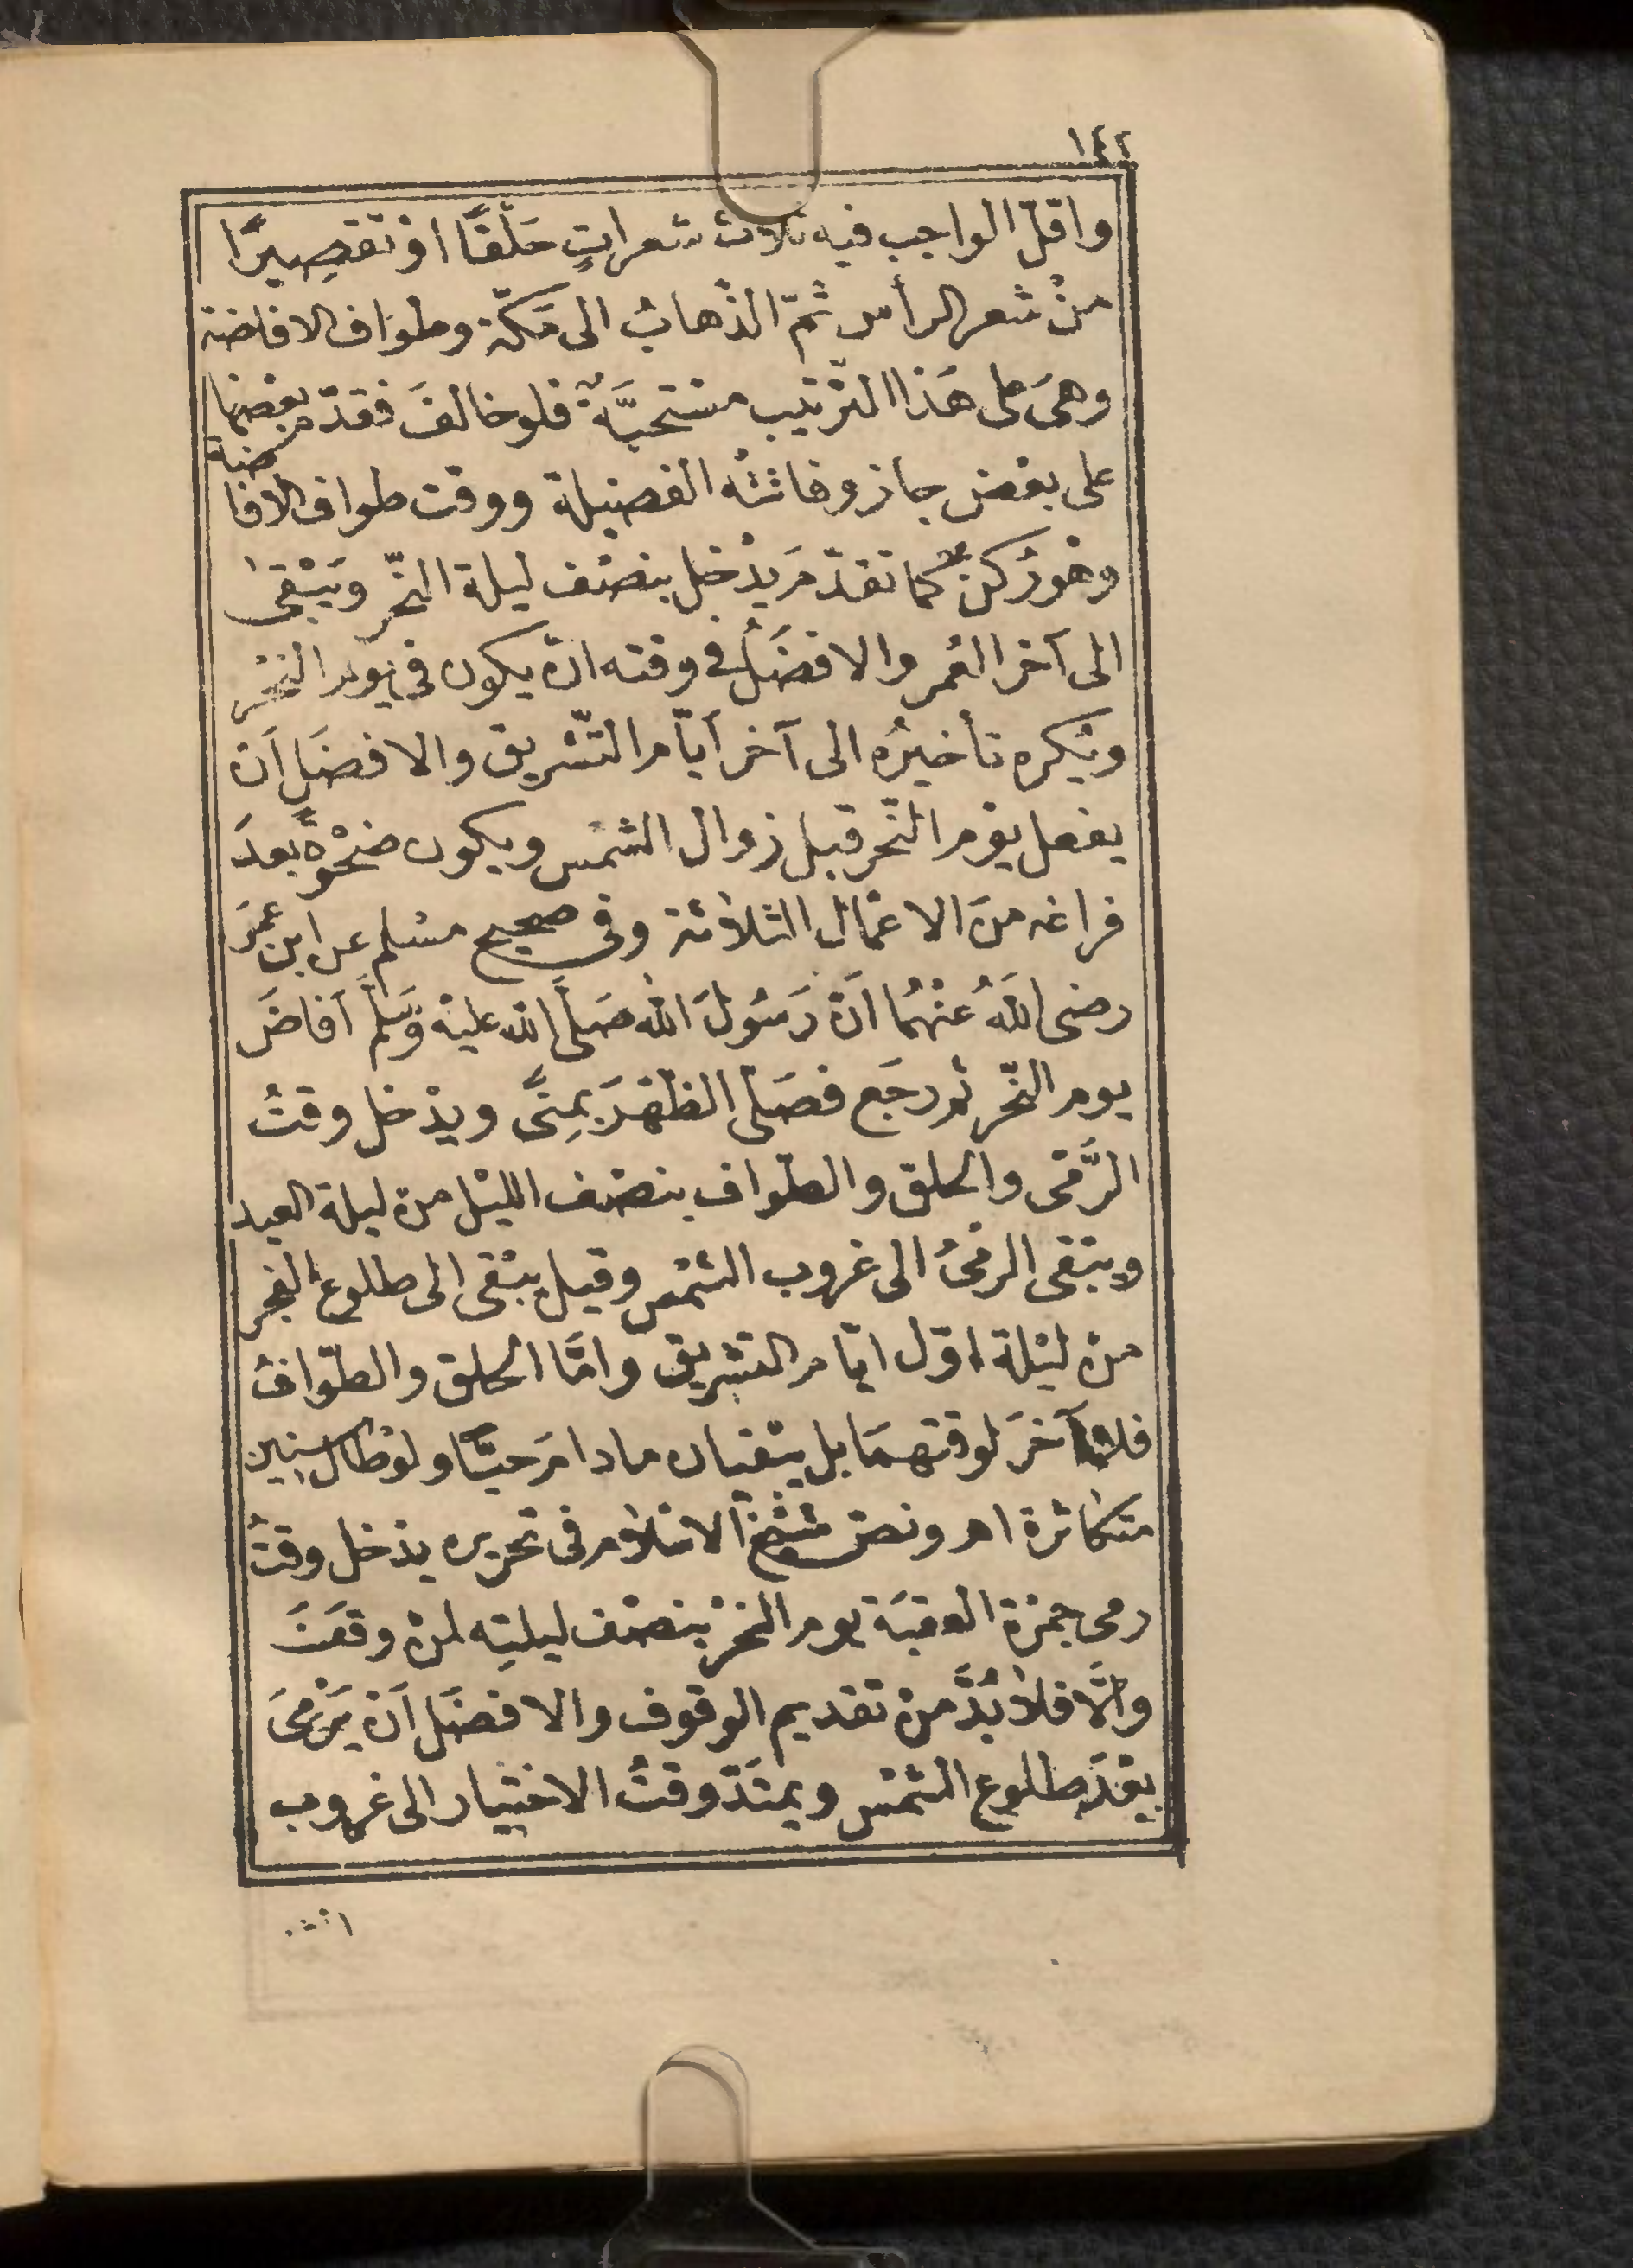 ١٤٢
واقلّ الواجب فيه ثلاث شعراتٍ حَلْقًا اوْ تقصِيرًا
منْ شعر الرأس ثمّ الذّهابُ الى مَكّة وطوَاف الافاضة
وهىَ على هَذا الترْتيب مسْتحبَّةٌ فلو خالفَ فقدّم بعْضها
على بعْض جاز وفاتتْه الفضيلة ووقت طواف الافاضة
وهْو رُكنٌ كما تقدّمَ يدْخل بنصْف ليلة النّحْر ويَبْقى
الى آخر العُمر والافضَلُ فى وقته انْ يكون فى يوْم النحْر
ويُكره تأخيرُه الى آخر أيّام التّشْريق والافضَل اَنْ
يفعل يوْم النّحر قبل زوال الشمْس ويكون ضحْوةً بعدَ
فراغه منَ الاعْمال الثلاثة وفى صحيح مسْلم عن ابن عمَرَ
رضى اللهُ عنْهُما اَنّ رَسُولَ الله صَلَّى الله عليْه وَسَلَّمَ اَفاضَ
يوم النّحْر ثم رجَع فصَلّى الظّهْرَ بمِنًى ويدْخل وقتُ
الرَّمْى والحلق والطّواف بنصْف الليْل منْ ليلة العيد
ويبْقى الرمْىُ الى غروب الشمْس وقيل يبْقى الى طلوع الفجر
منْ ليْلة اوّل ايّام التشريق وامَّا الحلق والطّوافُ
فلا آخرَ لوقتهمَا بل يبْقيان مادامَ حيًّا ولوْ طال سنين
متكاثرة اهـ ونصّ شيْخ الاسْلام فى تحريره يدْخل وقتُ
رمى جمْرة العقبَة يوم النحْر بنصْف ليلتِه لمنْ وقفَ
والَّا فلا بُدَّ منْ تقديم الوقوف والافضَل اَنْ يَرْمىَ
بعْدَ طلوع الشمْس ويمتَدّ وقتُ الاختيار الى غروب